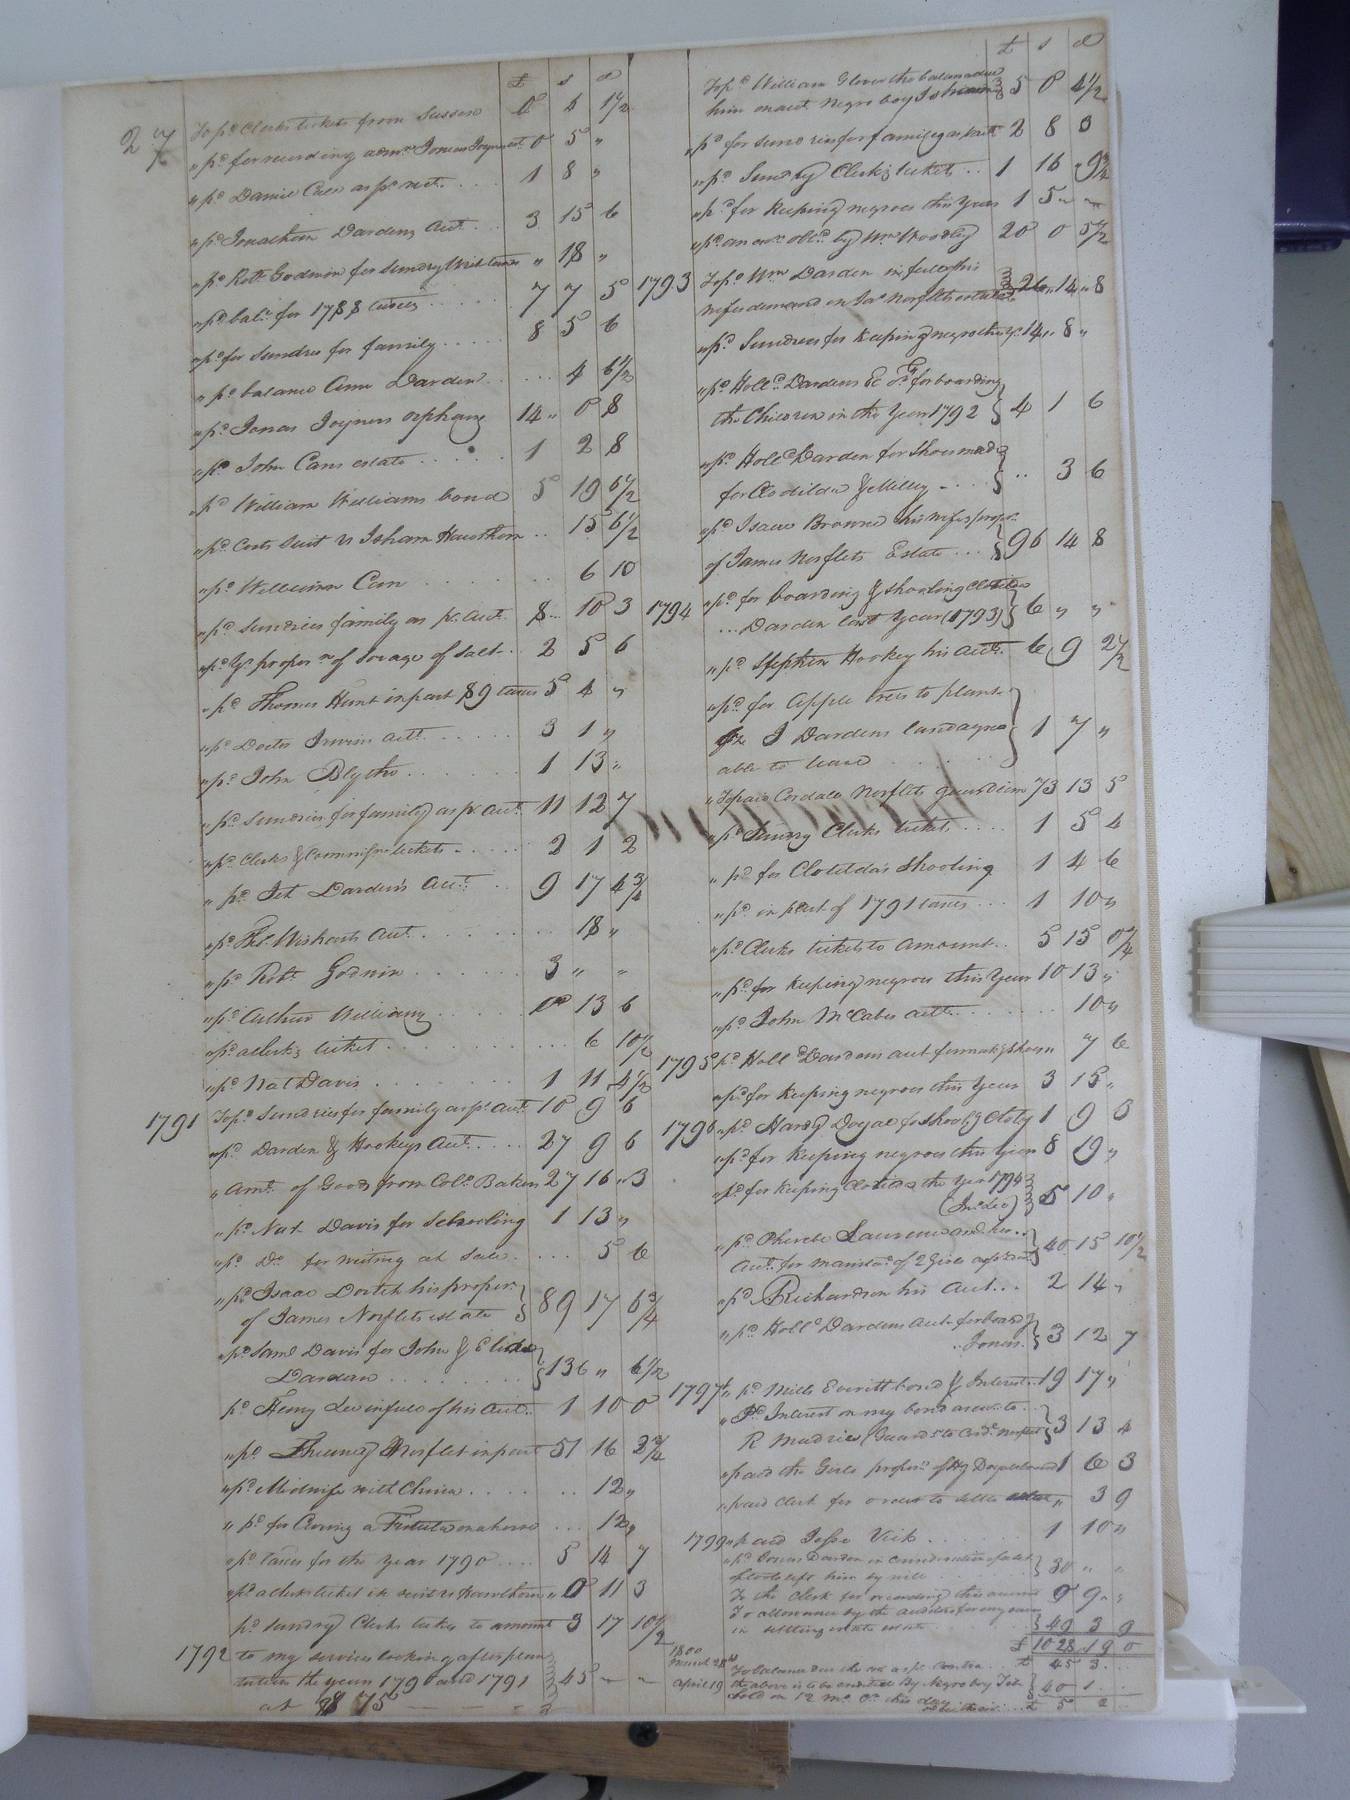 27
£ s d
To pd Clerks tickets from Sussex 0 4 1 1/2
" pd for recording admr Jonas Joyner est 0 5 "
" pd Daniel Carr as pr rect. . . . 1 8 "
" pd Jonathan Dardens Acct . . 3 15 6
" pd Robt Godwin for sundry Writtens " 18 "
" pd balc for 1788 taxes . . . . . 7 7 5
" pd for sundries for family . . . . . 8 5 6
" pd balance Ann Darden . . . . 4 6 1/2
" pd Jonas Joyners orphans 14 " 0 8
" pd John Carrs estate . . . . . 1 2 8
pd William Williams bond 5 19 6 1/2
" pd Costs Suit vs Isham Hawthorn . . 15 6 1/2
" pd William Carr . . . . . . . 6 10
" pd sundries family as pr Acct. 8 10 3
" pd propor n of of salt . . 2 5 6
" pd Thomas Hunt in part 89 taxes 5 4 "
" pd Doctr Irwin actt . . . . . 3 1 "
" pd John Blythe . . . . . . 1 13 "
" pd sundries for family as pr Act. 11 12 7
" pd Clerks & tickets . . . . . 2 1 2
" pd Jet Darden's Actt . 9 17 4 3/4
" pd Wisharts Act . . . . . . . . 18 "
" pd Robt Godwin . . . . . . 3 " "
" pd Arthur Williams . . . . . 0 13 6
" pd a clerks ticket . . . . . . . . . . . 6 10 1/2
" pd Nat Davis . . . . . . . . 1 11 4 1/2
1791 To pd Sundries for family as pr Act. 10 9 6
" pd Darden & Hookeys Act . . . . 27 9 6
" Amt of Goods from Colo Baker 27 16 " 3
" pd Nat Davis for Schooling 1 13 "
" pd Do for at sale . . . . 5 6
" pd Isaac Dortch his propor n
of James Norflets estate } 89 17 6 3/4
" pd Saml Davis for John & Elisha
Dardan . . . . . . . . . } 136 " 6 1/2
pd Henry Lee in full of his Act. . 1 10 0
" pd Norflet in part 51 16 2 3/4
" pd Midwife with China . . . . . . . 12 "
" pd for Curing a Fistula on a horse . . . 12 "
" pd taxes for the year 1790 . . . . 5 14 7
" pd a clerks ticket in suit vs Hawthorn " 0 11 3
pd sundry Clerks tickts to amount 3 17 10 1/2
1792 to my services looking after plan
tation the years 1790 and 1791
at 75 — — — 45 — —
£ s d
To pd William Glover the balance due
him on acct Negro boy Isham } 5 0 4 1/2
" pd for sundries for family as pr Act 2 8 0
" pd Sundry Clerks tickets . . 1 16 9 3/4
" pd for keeping negroes this Year 1 5 " —
" pd an obld by Wm Woodley 20 0 5 1/2
1793 To pd Wm Darden in full of his
wifes demand on Jas Norflets estate } 26 " 14 " 8
" pd Sundries for keeping negroes this yr 14 " 8 "
" pd Holld Dardens for boarding
the Children in the Year 1792 } 4 1 6
" pd Holld Darden for Shoes made
for Clotilda & Milley . . . . } . . 3 6
" pd Isaac Browne his wifes propr
of James Norflets Estate . . . } 96 14 8
1794 " pd for boarding & schooling Clotilda
. . . Darden last Year (1793) } 6 " "
" pd Stephen Hookey his Actt . 6 9 2 1/2
" pd for Apple trees to plant
J Dardens land agree
able to lease . . . . . } 1 7 "
" To paid Cordale Norflets guardian 73 13 5
" pd Sundry Clerks tickets . . . . 1 5 4
" pd for Clotilda's Schooling 1 4 6
" pd in part of 1791 taxes . . . 1 10 "
" pd Clerks tickets to amount . . 5 15 0 1/4
" pd for keeping negroes this Year 10 13 "
" pd John McCabes actt . . . . . . . 10 "
1795 pd Holld Dardens act for making shoes " 7 6
" pd for keeping negroes this Year 3 15 "
1796 " pd Hardy Doyal for Schoolg Cloty 1 9 0
" pd for keeping negroes this Year 8 19 "
" pd for keeping Clotilda the Year 1794
(Jno Lee) } 5 10 "
" pd Pherebe Laurence and her . .
Act. for maintce of 2 Girls as pr Act } 40 15 10 1/2
" pd Richardson his Act . . . 2 14 "
" pd Holld Dardens Act for board
. . Jonas. } 3 12 7
1797 " pd Mills Everitt bond & Interest . 19 17 "
" Pd Interest on my bond to . .
R Madrie (Guardn to Cordl Norflet } 3 13 4
" paid the Girls proporn of Hy Doyal 1 6 3
" paid Clerk for orders to settle " 3 9
1799 " paid Jesse Vick . . . . . . 1 10 "
" pd Jonas Dardan in consideration of
left him by will . . . . . } 30 " "
To the Clerk for recording this account 0 9 "
To allowance by the auditors for my care
in settling estate } 49 3 9
£ 1028 . 19 0
1800
March 28th To balance due the est as pr Contra . . . £ 45 3 . .
April 19 the above is to be credited By Negro boy Jet
Sold on 12 Mo Cr this day } 40 1 . .
£ 5 2 . .